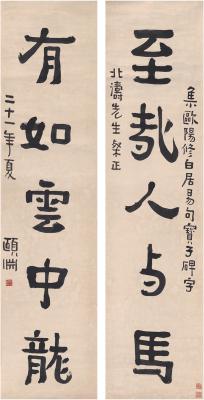 至哉人与馬
集歐陽修白居易句寶子碑字
北濤先生粲正
有如雲中龍
二十一年夏
頤淵